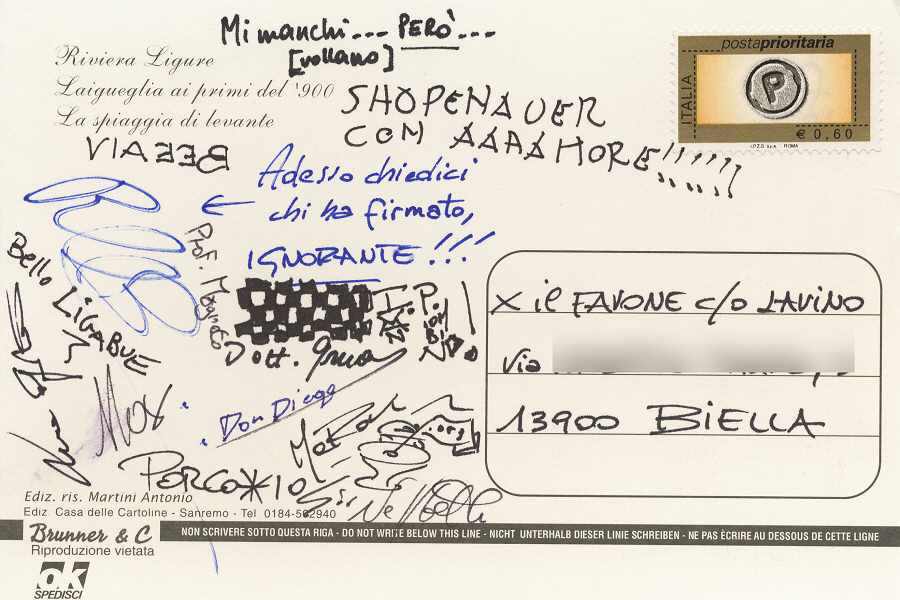 Mi manchi... PERÒ...
Riviera Ligure
Laigueglia ai primi del '900
La spiaggia di levante
SHOPENAUER
COM AAAAMORE!!!!!!
VIA
Adesso chiedici
chi ha firmato,
IGNORANTE!!!
Prof. Magneto
Bello
LIGABUE
Dott.
Don Diego
Max
PORCO*IO
postaprioritaria
ITALIA
P
€ 0,60
I.P.Z.S. S.p.A. ROMA
X il FAVONE c/o LAVINO
Via
13900 BIELLA
Ediz. ris. Martini Antonio
Ediz. Casa delle Cartoline - Sanremo - Tel. 0184-562940
Brunner & C
Riproduzione vietata
NON SCRIVERE SOTTO QUESTA RIGA - DO NOT WRITE BELOW THIS LINE - NICHT UNTERHALB DIESER LINIE SCHREIBEN - NE PAS ÈCRIRE AU DESSOUS DE CETTE LIGNE
ok
SPEDISCI